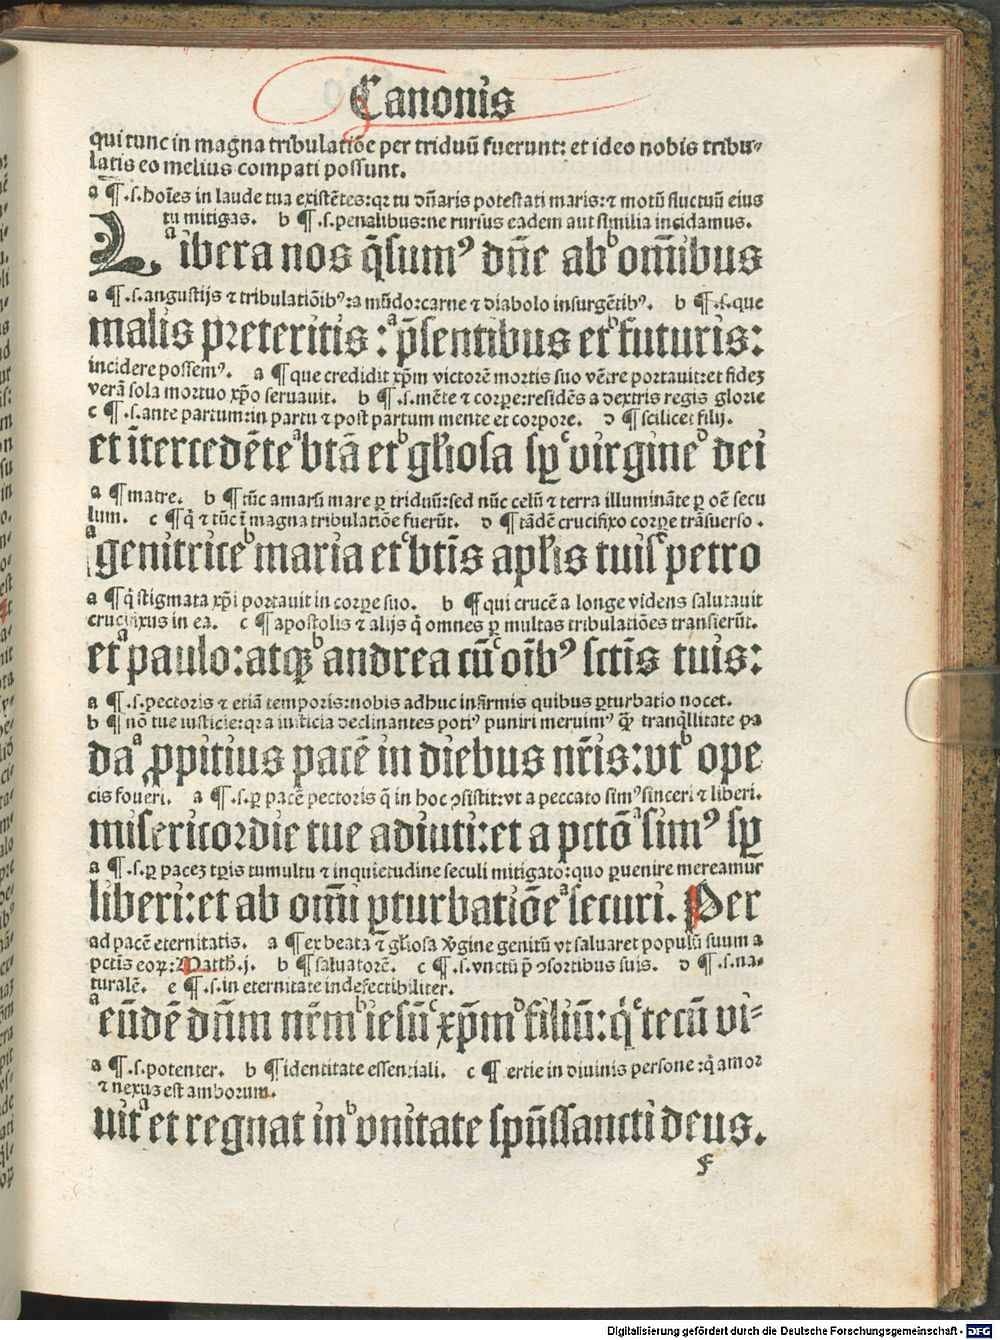 Canonis
qui tunc in magna tribulatiōe per triduū fuerunt: et ideo nobis tribu⸗
latis eo melius compati possunt.
a ¶ .s. hoīes in laude tua existētes: qꝛ tu dn̄aris potestati maris: ⁊ motū fluctuū eius
tu mitigas. b ¶ .s. penalibus: ne rursus eadem aut similia incidamus.
Libera nos q̄sumꝰ dn̄e abᵇ om̄ibus
a ¶ .s. angustijs ⁊ tribulatiōibꝰ: a mūdo: carne ⁊ diabolo insurgētibꝰ. b ¶ .s. que
malis preteritis: ᵃ p̄sentibus etᵇ futuris:
incidere possemꝰ. a ¶ que credidit xp̄m victorē mortis suo vētre portauit: et fideʒ
verā sola mortuo xp̄o seruauit. b ¶ .s. mēte ⁊ corpe: residēs a dextris regis glorie
c ¶ .s. ante partum: in partu ⁊ post partum mente et corpore. d ¶ scilicet filij.
et ītercedēteᵃ btā etᵇ gl̄iosa sꝑᶜ virgineᵈ dei
a ¶ matre. b ¶ tūc amarū mare ꝑ triduū: sed nūc celū ⁊ terra illumināte ꝑ oē secu
lum. c ¶ q̇ ⁊ tūc ī magna tribulatiōe fuerūt. d ¶ tādē crucifixo corꝑe trāsuerso.
ᵃ genitriceᵇ maria etᶜ btīs apl̄is tuisᵈ petro
a ¶ q̇ stigmata xp̄i portauit in corꝑe suo. b ¶ qui crucē a longe videns salutauit
crucifixus in ea. c ¶ apostolis ⁊ alijs q̇ omnes ꝑ multas tribulatiōes transierūt.
etᵃ paulo: atqꝫᵇ andrea cūᶜ oībꝰ sctīs tuis:
a ¶ .s. pectoris ⁊ etiā temporis: nobis adhuc infirmis quibus ꝑturbatio nocet.
b ¶ nō tue iusticie: qꝛ a iusticia declinantes potiꝰ puniri meruimꝰ tranq̇llitate pa
daᵃ ꝓpitius pacē in diebus nr̄is: vtᵇ ope
cis foueri. a ¶ .s. ꝑ pacē pectoris q̄ in hoc ꝯsistit: vt a peccato simꝰ sinceri ⁊ liberi.
misericordie tue adiuti: et a pctōᵃ simꝰ sꝑ
a ¶ .s. ꝑ paceʒ tꝑis tumultu ⁊ inquietudine seculi mitigato: quo ꝑuenire mereamur
liberi: et ab om̄i ꝑturbatiōeᵃ securi. Per
ad pacē eternitatis. a ¶ ex beata ⁊ gl̄iosa v̇gine genitū vt saluaret populū suum a
pctīs eoꝝ: Matth. j. b ¶ saluatorē. c ¶ .s. vnctū p̄ ꝯsortibus suis. d ¶ .s. na⸗
turalē. e ¶ .s. in eternitate indefectibiliter.
ᵃ eūdē dn̄m nr̄mᵇ iesūᶜ xp̄mᵈ filiū: q̇ᵉ tecū vi⸗
a ¶ .s. potenter. b ¶ identitate essentiali. c ¶ ertie in diuinis persone: q̇ amor
⁊ nexus est amborum.
uitᵃ et regnat inᵇ vnitate spūssanctiᶜ deus.
f
Digitalisierung gefördert durch die Deutsche Forschungsgemeinschaft - DFG